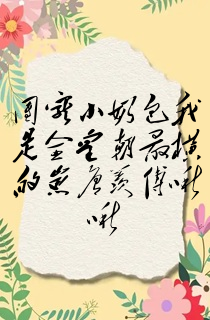 团宠小奶包我
是全皇朝最横
的崽唐羡傅啾
啾